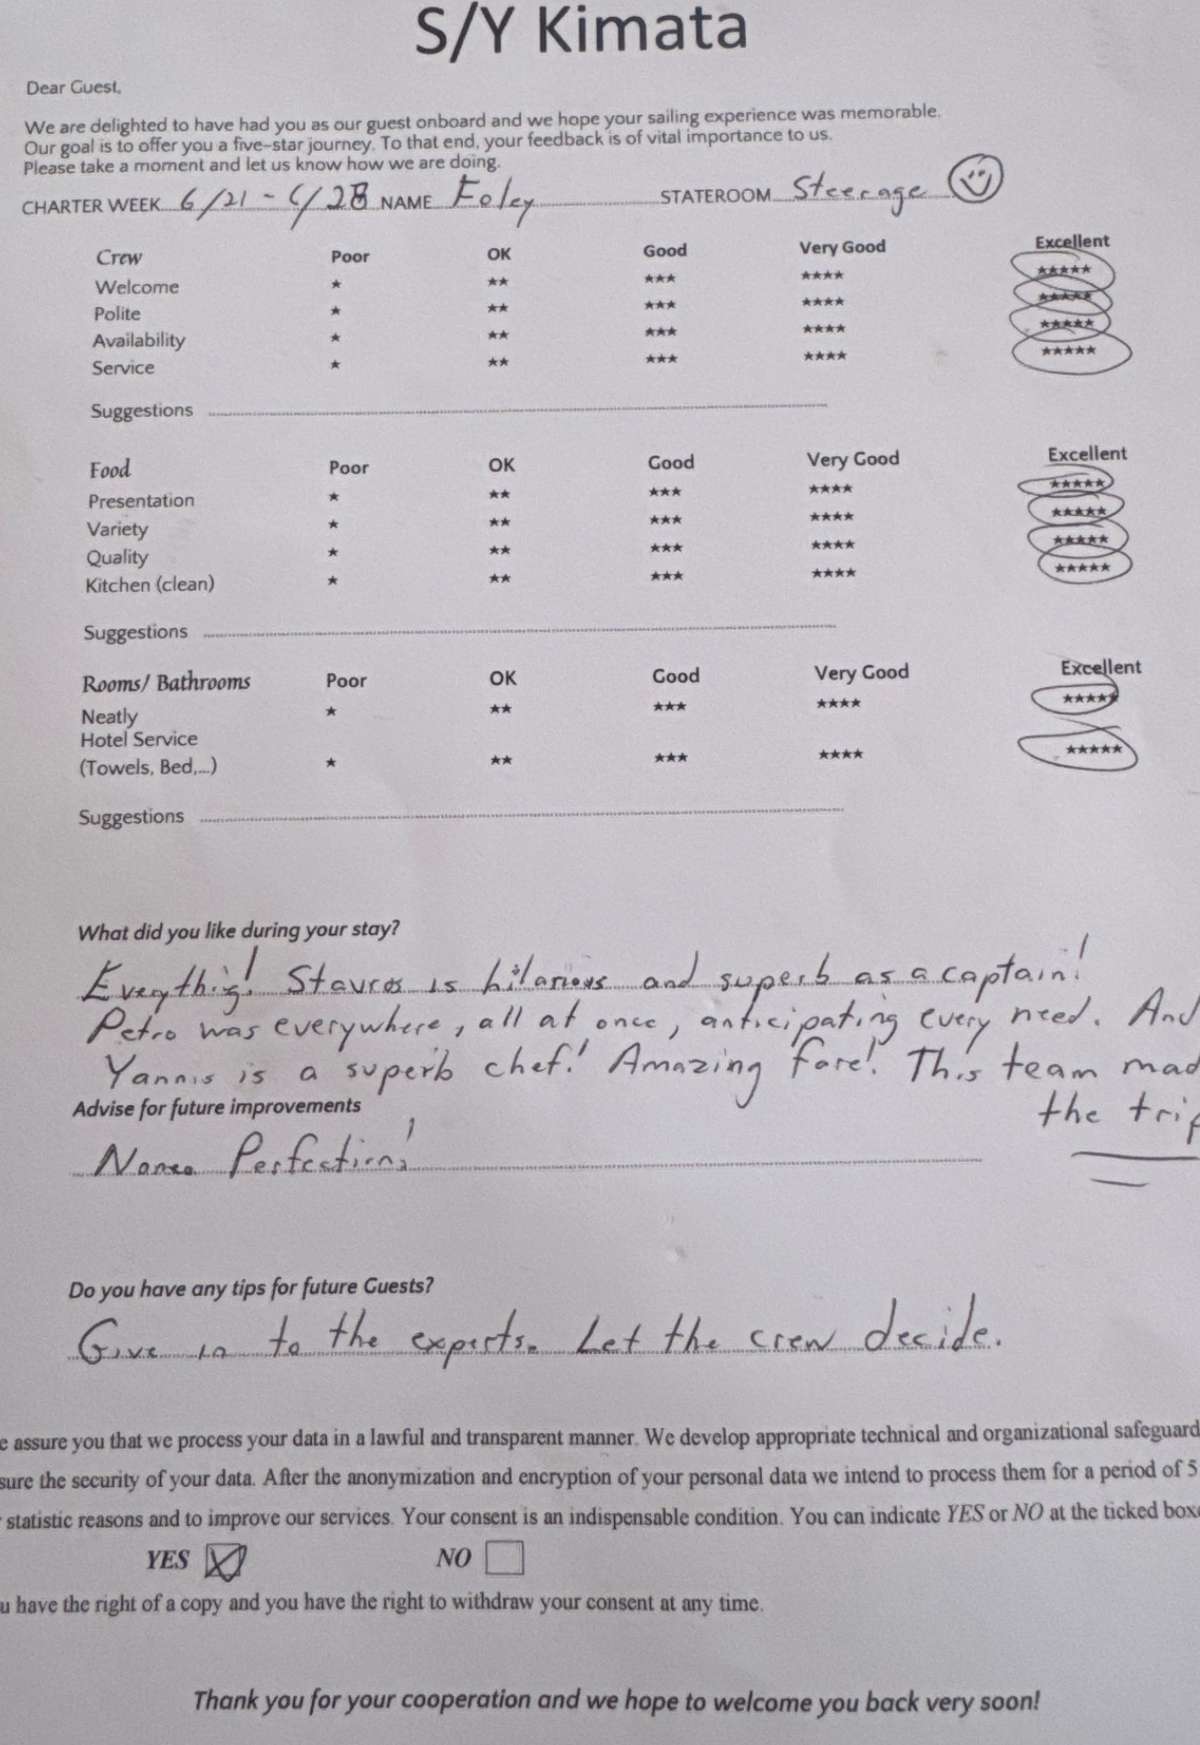 S/Y Kimata
Dear Guest,
We are delighted to have had you as our guest onboard and we hope your sailing experience was memorable.
Our goal is to offer you a five-star journey. To that end, your feedback is of vital importance to us.
Please take a moment and let us know how we are doing.
CHARTER WEEK 6/21 - 6/28 NAME Foley STATEROOM Steerage
Crew Poor OK Good Very Good Excellent
Welcome ★ ★★ ★★★ ★★★★ ★★★★★
Polite ★ ★★ ★★★ ★★★★ ★★★★★
Availability ★ ★★ ★★★ ★★★★ ★★★★★
Service ★ ★★ ★★★ ★★★★ ★★★★★
Suggestions
Food Poor OK Good Very Good Excellent
Presentation ★ ★★ ★★★ ★★★★ ★★★★★
Variety ★ ★★ ★★★ ★★★★ ★★★★★
Quality ★ ★★ ★★★ ★★★★ ★★★★★
Kitchen (clean) ★ ★★ ★★★ ★★★★ ★★★★★
Suggestions
Rooms/ Bathrooms Poor OK Good Very Good Excellent
Neatly ★ ★★ ★★★ ★★★★ ★★★★★
Hotel Service
(Towels, Bed,...) ★ ★★ ★★★ ★★★★ ★★★★★
Suggestions
What did you like during your stay?
Everythig! Stavros is hilarious and superb as a captain!
Petro was everywhere, all at once, anticipating every need. And
Yannis is a superb chef! Amazing fare! This team mad
the trip
Advise for future improvements
None. Perfection!
Do you have any tips for future Guests?
Give in to the experts. Let the crew decide.
e assure you that we process your data in a lawful and transparent manner. We develop appropriate technical and organizational safeguard
sure the security of your data. After the anonymization and encryption of your personal data we intend to process them for a period of 5
statistic reasons and to improve our services. Your consent is an indispensable condition. You can indicate YES or NO at the ticked box
YES NO
u have the right of a copy and you have the right to withdraw your consent at any time.
Thank you for your cooperation and we hope to welcome you back very soon!